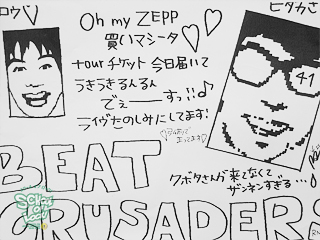 ロウ♡
Oh my ZEPP
買いマシータ♡
ヒタカさ
tourチケット今日届いて
うきうきるんるん
でぇーーーすっ!!♪
ライヴたのしみにしてます!
41
クボタさんが来てなくて
ザンネンすぎる…
BEAT
CRUSADERS